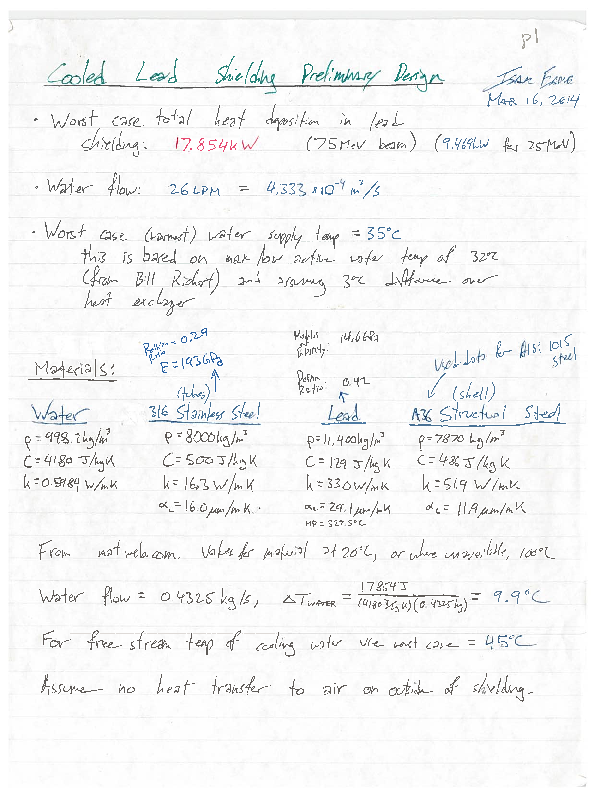 p1
Cooled Lead Shielding Preliminary Design
Mar 16, 2014
• Worst case total heat deposition in lead
shielding: 17.854kW (75MeV beam) (9.469kW for 25MeV)
• Water flow: 26 LPM = 4.333 x10⁻⁴ m³/s
• Worst case (warmest) water supply temp = 35°C
this is based on max low active water temp of 32°C
(from Bill Richert) and assuming 3°C difference over
heat exchager
Poisson Ratio = 0.29
E = 193GPa
Modulus 14.0GPa
Poisson Ratio: 0.42
Used data for AISI 1015 steel
Materials:
(tubes) (shell)
Water 316 Stainless Steel Lead A36 Structural Steel
ρ=998.2kg/m³ ρ=8000kg/m³ ρ=11,400kg/m³ ρ=7870 kg/m³
C=4180 J/kgK C=500J/kgK C=129 J/kgK C=486 J/kgK
k=0.5984 W/mK k=16.3 W/mK k=33.0W/mK k=51.9 W/mK
α_L=16.0μm/mK α_L=29.1μm/mK α_L=11.9μm/mK
MP=327.5°C
From matweb.com. Values for material at 20°C, or where unavailable, 100°C
Water flow = 0.4325 kg/s, ΔT_WATER = 17854J / (4180J/kgK)(0.4325kg) = 9.9°C
For free stream temp of cooling water use worst case = 45°C
Assume no heat transfer to air on outside of shielding.